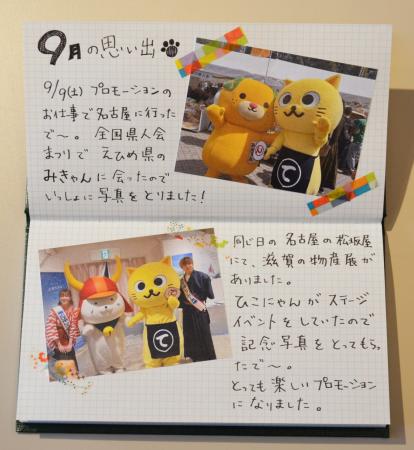 9月の思い出
9/9(土) プロモーションの
お仕事で名古屋に行った
で〜。全国県人会
まつりで えひめ県の
みきゃんに会ったので
いっしょに写真をとりました!
同じ日の名古屋の松坂屋
にて、滋賀の物産展が
ありました。
ひこにゃんが ステージ
イベントをしていたので
記念写真をとってもらっ
たで〜。
とっても楽しいプロモーション
になりました。
て
て